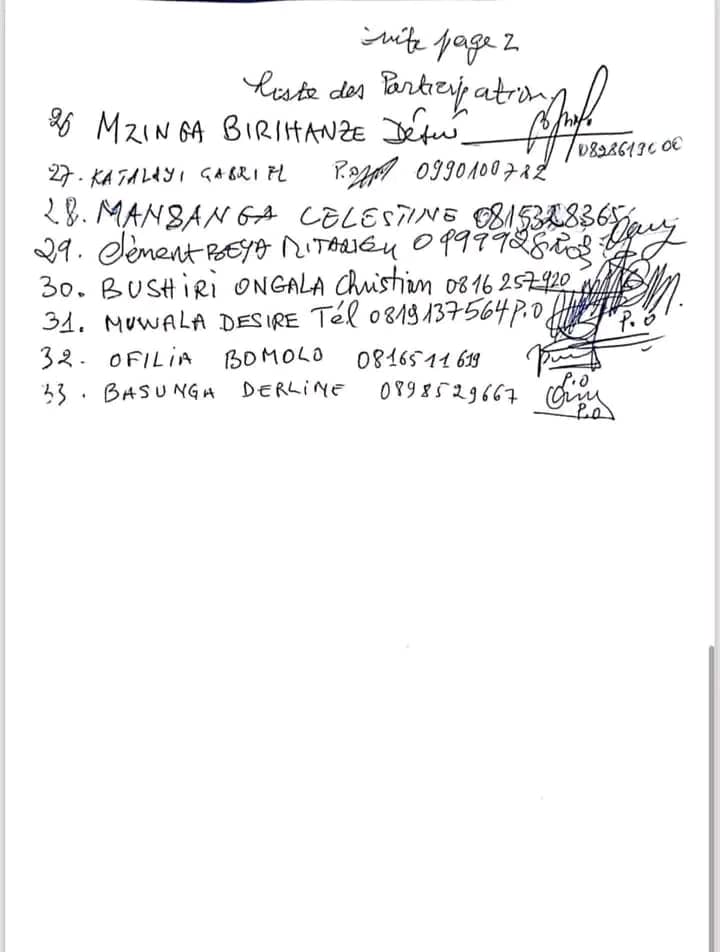 suite page 2
Liste des Participation
26 MZINGA BIRIHANZE Désiré
27. KATALAYI GABRIEL P.O 0990100722
28. MANSANGA CELESTINE 0815328365
29. Clément BEYA
30. BUSHIRI ONGALA Christian 0816257920
31. MUWALA DESIRE Tél 0819137564 P.O
P.O
32. OFILIA BOMOLO 0816511619
P.O
33. BASUNGA DERLINE 0898529667
P.O